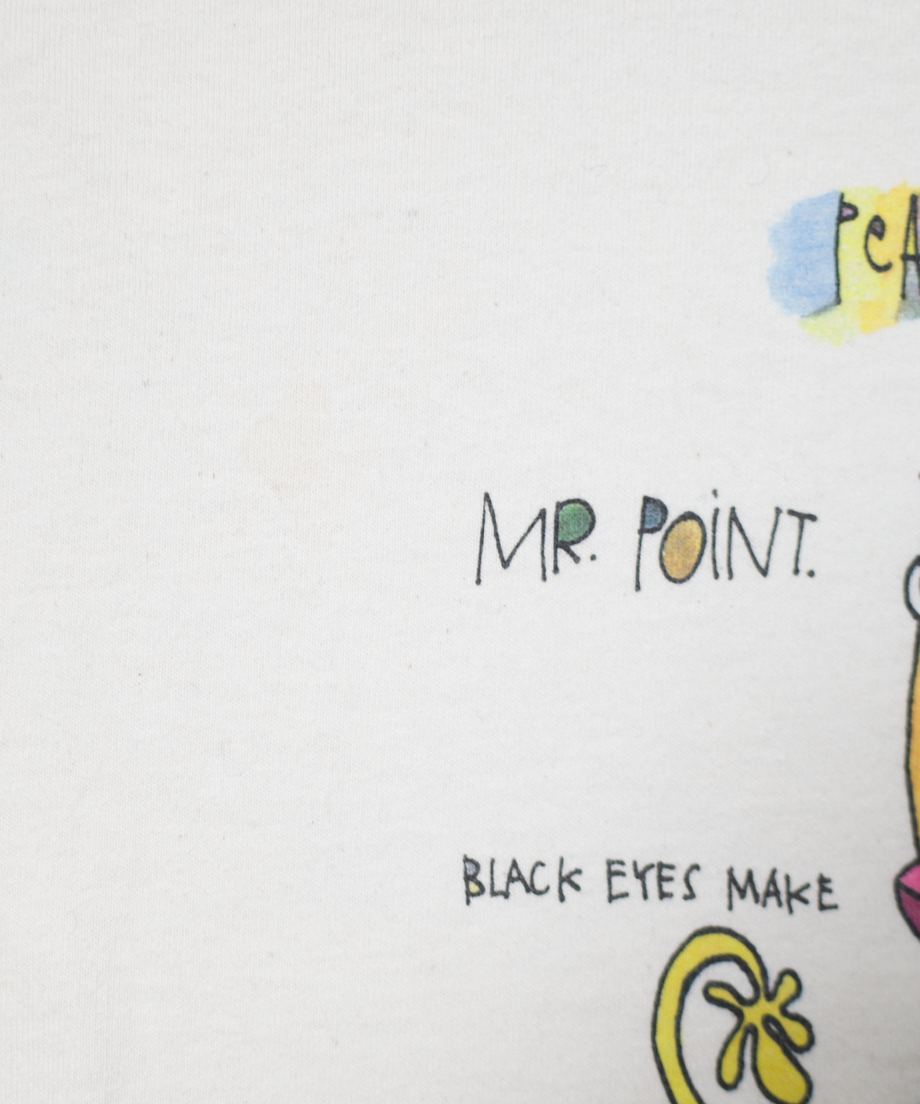 MR. POINT.
BLACK EYES MAKE